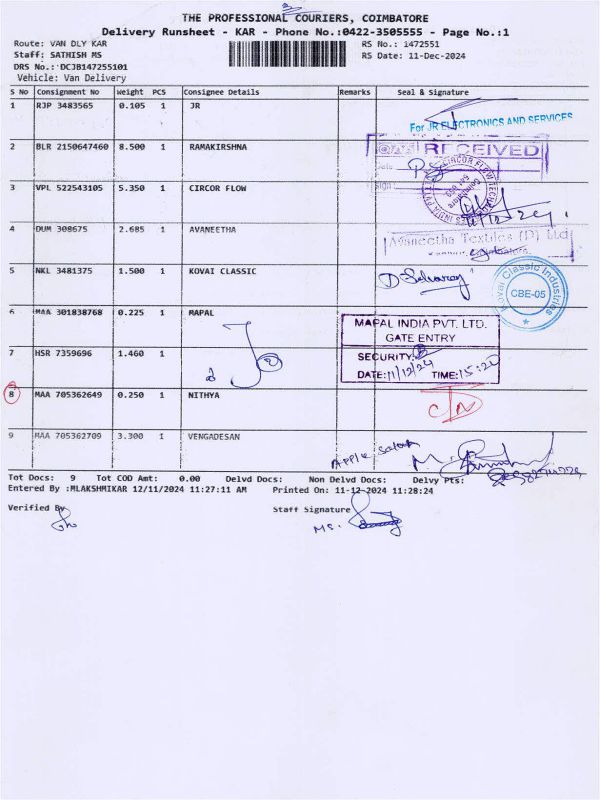 THE PROFESSIONAL COURIERS, COIMBATORE
Delivery Runsheet - KAR - Phone No.:0422-3505555 - Page No.:1
Route: VAN DLY KAR
RS No.: 1472551
Staff: SATHISH MS
RS Date: 11-Dec-2024
DRS No.:DCJB147255101
Vehicle: Van Delivery
S No Consignment No Weight PCS Consignee Details Remarks Seal & Signature
1 RJP 3483565 0.105 1 JR
For JR ELECTRONICS AND SERVICES
2 BLR 2150647460 8.500 1 RAMAKIRSHNA
RECEIVED
3 VPL 522543105 5.350 1 CIRCOR FLOW
4 DUM 308675 2.685 1 AVANEETHA
Avaneetha Textiles (P) Ltd
5 NKL 3481375 1.500 1 KOVAI CLASSIC
Kovai Classic Industries
CBE-05
6 MAA 301838768 0.225 1 MAPAL
MAPAL INDIA PVT. LTD.
GATE ENTRY
7 HSR 7359696 1.460 1
SECURITY:
DATE:11/12/24 TIME:15:20
8 MAA 705362649 0.250 1 NITHYA
9 MAA 705362709 3.300 1 VENGADESAN
Tot Docs: 9 Tot COD Amt: 0.00 Delvd Docs: Non Delvd Docs: Delvy Pts:
Entered By :MLAKSHMIKAR 12/11/2024 11:27:11 AM Printed On: 11-12-2024 11:28:24
Verified By
Staff Signature
MS.